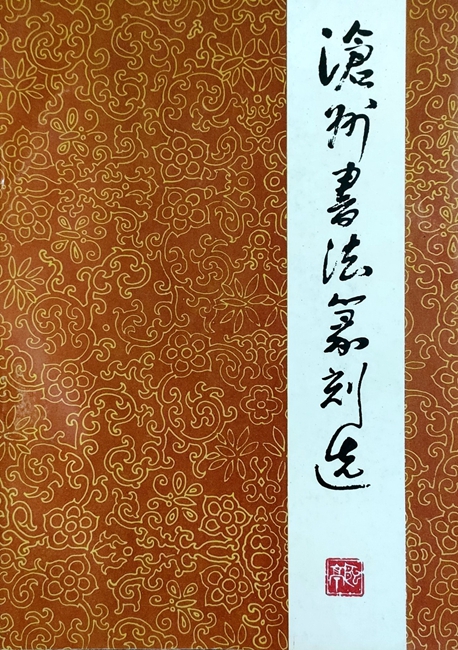 滄州書法篆刻选